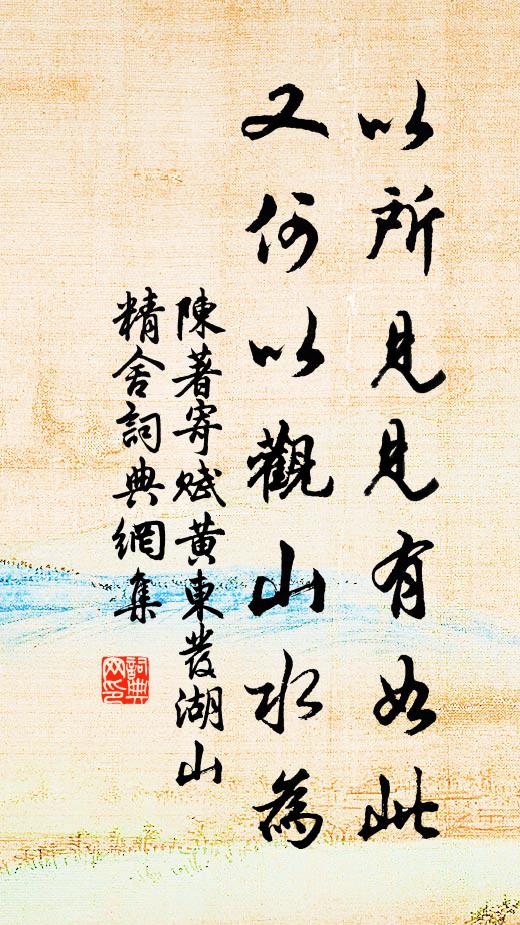 以所見見有如此
又何以觀山水為
陳著寄賦黄東發湖山
精舍詞典網集
詞典网印